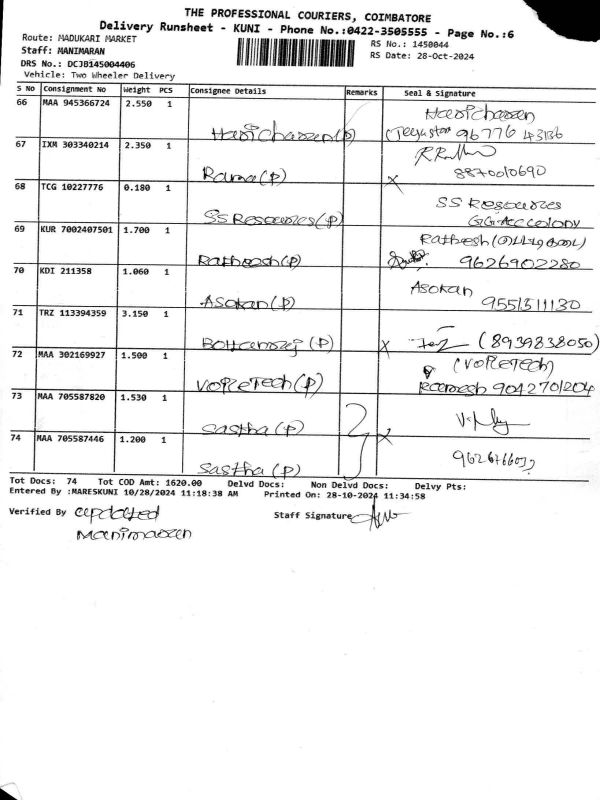 THE PROFESSIONAL COURIERS, COIMBATORE
Delivery Runsheet - KUNI - Phone No.:0422-3505555 - Page No.:6
Route: MADUKARI MARKET
RS No.: 1450044
Staff: MANIMARAN
RS Date: 28-Oct-2024
DRS No.: DCJB145004406
Vehicle: Two Wheeler Delivery
S No Consignment No Weight PCS Consignee Details Remarks Seal & Signature
66 MAA 945366724 2.550 1 Haricharan
Haricharan(P) 96776 43136
67 IXM 303340214 2.350 1
Rama(P) 8870010690
68 TCG 10227776 0.180 1 SS Resources
SS Resources(P) GG-Acc Colony
69 KUR 7002407501 1.700 1 Ratheesh
Ratheesh(P) 9626902280
70 KDI 211358 1.060 1 Asokan
Asokan(P) 9551311130
71 TRZ 113394359 3.150 1
(P) (8939838050)
72 MAA 302169927 1.500 1
(P) Ramesh 9042701204
73 MAA 705587820 1.530 1
Sastha (P)
74 MAA 705587446 1.200 1
Sastha (P)
Tot Docs: 74 Tot COD Amt: 1620.00 Delvd Docs: Non Delvd Docs: Delvy Pts:
Entered By :MARESKUNI 10/28/2024 11:18:38 AM Printed On: 28-10-2024 11:34:58
Verified By updated Staff Signature
Manimaran